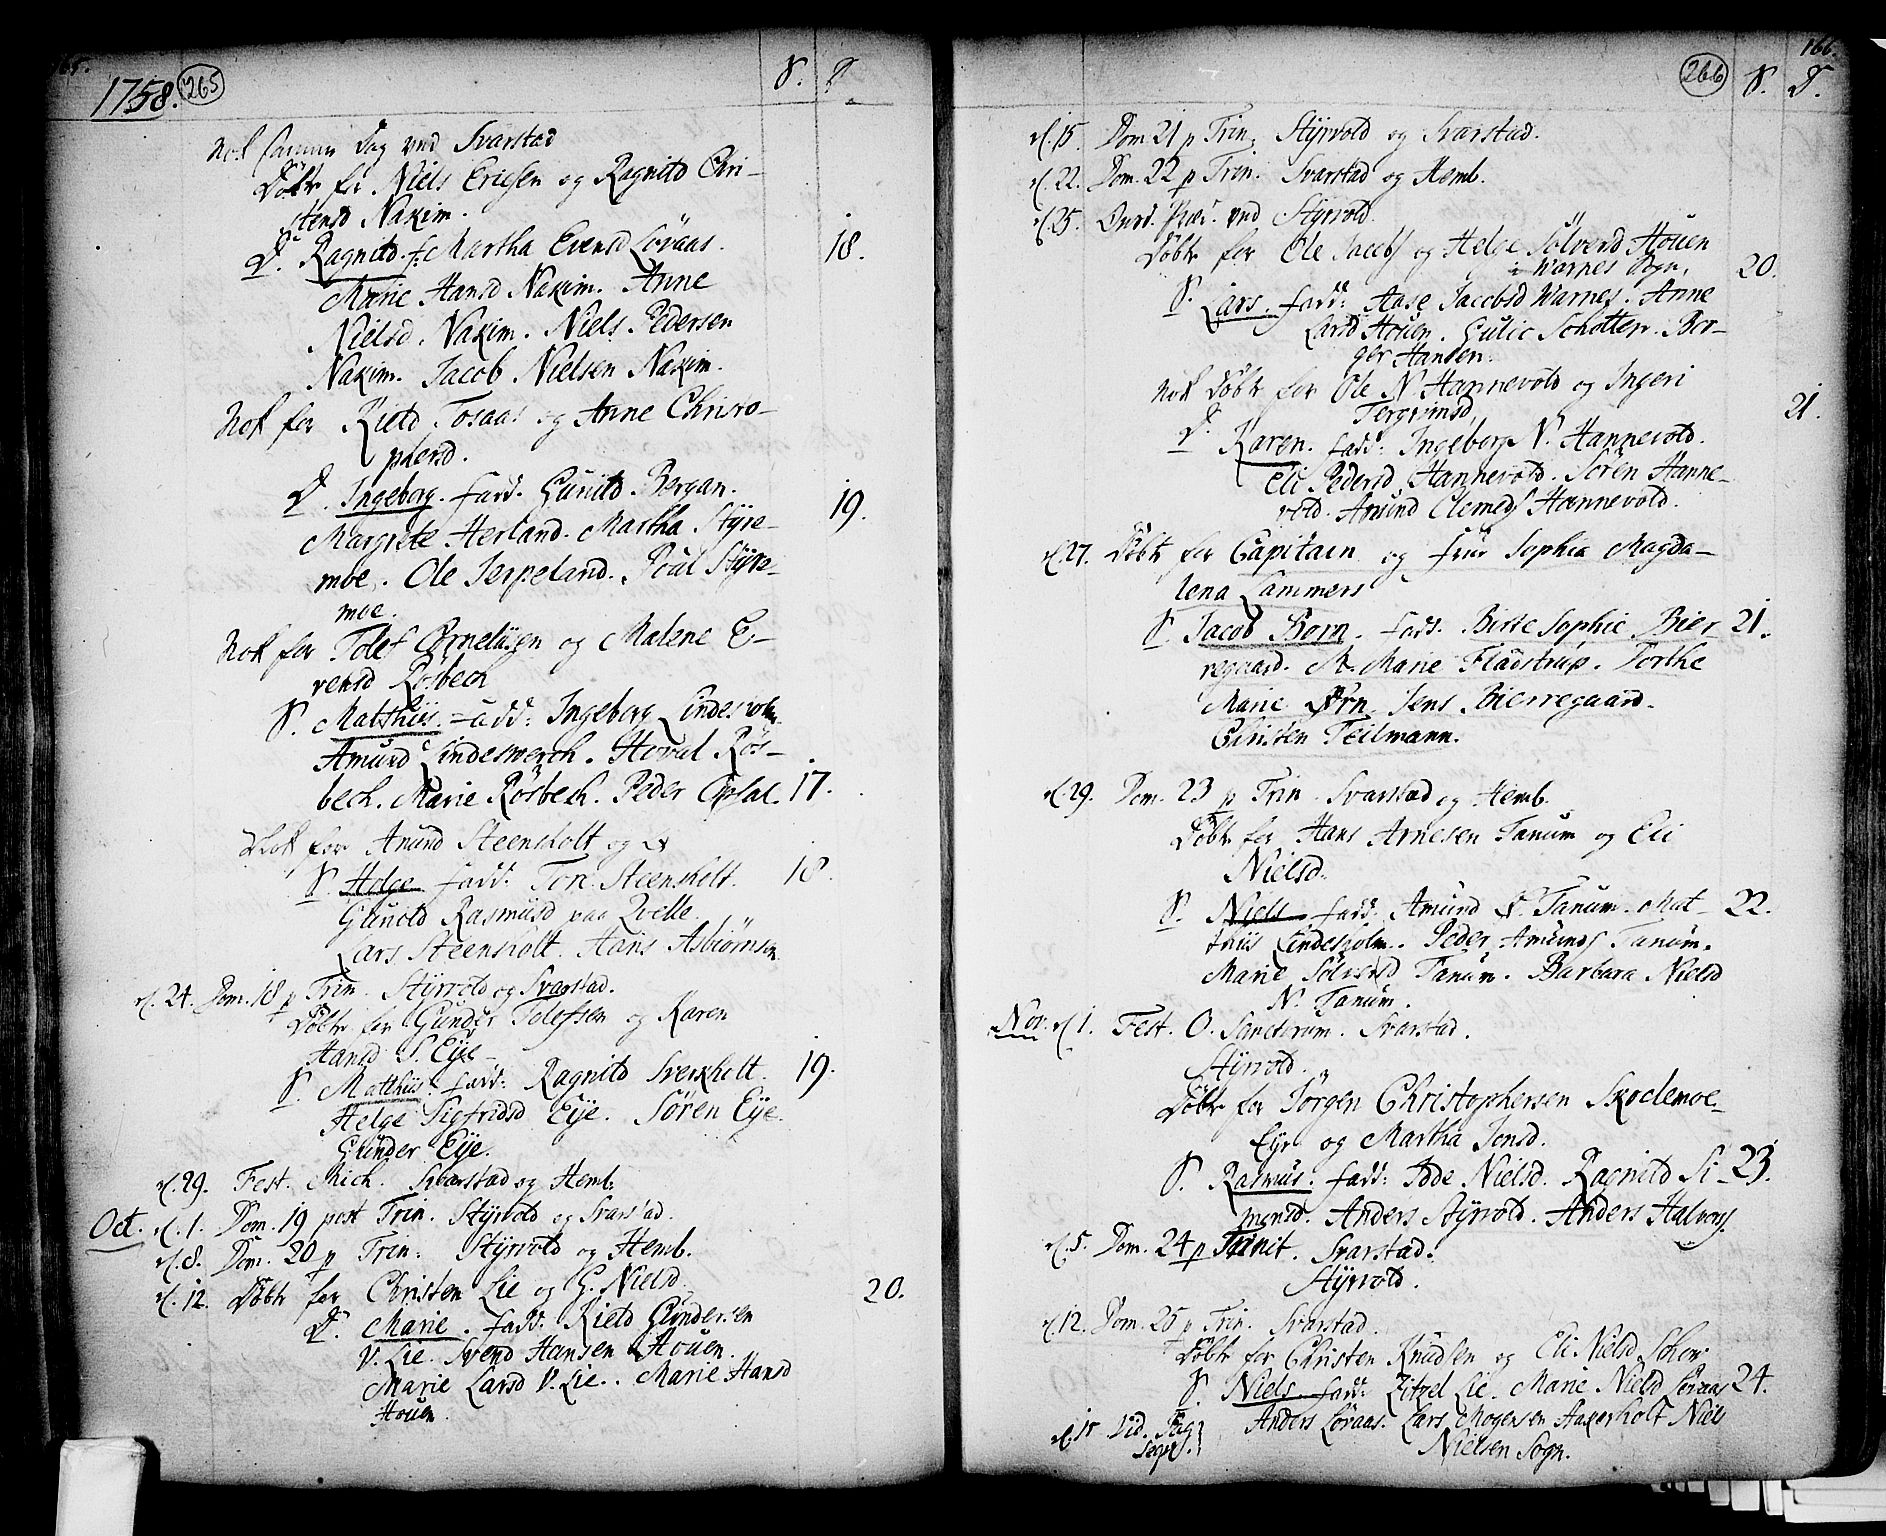 165.
1758. 265 S. D.
Nok samme Dag ved Svarstad
Döbt for Niels Ericsen og Ragnild Chri-
stensd Nakim.
D. Ragnild. f: Martha Evensd Löraas. 18.
Marie Hansd Nakim. Anne
Nielsd. Nakim. Niels Pedersen
Nakim. Jacob Nielsen Nakim.
Nok for Kield Tosaas og Anne Christo-
phersd.
D. Ingeborg. fadd. Gunild Bergan. 19.
Margrete Herland. Martha Styre-
moe. Ole Serpeland. Poul Styre-
moe.
Nok for Tolef Corneliisen og Malene E-
vensd Rösbech
S. Matthiis. fadd: Ingeborg Lindesholm.
Amund Lindeswerch. Hoval Rös-
bech. Marie Rösbech. Peder Opsal. 17.
Nok for Amund Steensholt og
S. Helge fadd: Tore Steensholt. 18.
Gunild Rasmusd paa Qvelle.
Lars Steensholt. Hans Asbiörnsen
d. 24. Dom. 18 p Trin. Styrvold og Svarstad.
Döbt for Gunder Tolefsen og Karen
Hansd S. Eije
S. Matthiis. fadd: Ragnild Sverkholt. 19.
Helge Sigfridsd Eije. Sören Eije.
Gunder Eije.
d. 29. Fest. Mich. Svarstad og Hemb.
Oct. d. 1. Dom. 19 post Trin. Styrvold og Svarstad.
d. 8. Dom. 20 p Trin. Styrvold og Hemb.
d. 12. Döbt for Christen Lie og G. Nielsd 20.
D. Marie. fadd: Kield Gundersen
V. Lie. Svend Hansen Houen.
Marie Larsd V. Lie. Marie Hansd
Houen.
166.
266 S. D.
d. 15. Dom 21 p Trin. Styrvold og Svarstad.
d. 22. Dom. 22 p Trin. Svarstad og Hemb.
d. 25. Onsd. Præd. ved Styrvold.
Döbt for Ole Jacobs og Helge Sölversd Houen
i Warnes Sogn. 20.
S. Lars. fadd: Aase Jacobsd Warnes. Anne
Larsd Houen. Gulic Scholten. Bør-
ger Hansen.
Nok Döbt for Ole N Hannevold og Ingeri
Tergrimsd. 21.
D. Karen. fadd: Ingeborg N. Hannevold.
Eli Pedersd Hannevold. Sören Hanne-
vold. Amund Clemeds Hannevold.
d. 27. Döbt for Capitain og frue Sophia Magda-
lena Lammers
S. Jacob Born. fadd. Birte Sophie Bier- 21.
regaard. M. Marie Fladstrup. Dorthe
Marie Örn. Jens Bierregaard.
Christen Teilmann.
d. 29. Dom. 23 p Trin. Svarstad og Hemb.
Döbt for Hans Arnesen Tanum og Eli
Nielsd.
S. Niels fadd. Amund Ö. Tanum. Mat- 22.
thiis Lindesholm. Peder Amunds Tanum.
Marie Sölversd Tanum. Barbara Nielsd
N. Tanum.
Nov. d. 1. Fest. O. Sanctorum. Svarstad.
Styrvold.
Döbt for Jörgen Christophersen Skodemoe-
Eye og Martha Jensd.
S. Rasmus. fadd: Edde Nielsd. Ragnild Si- 23.
monsd. Anders Styrvold. Anders Halvors.
d. 5. Dom. 24 p Trinit. Svarstad.
Styrvold.
d. 12. Dom. 25 p Trin. Svarstad.
Döbt for Christen Knudsen og Eli Nielsd Schow
S. Niels. fadd: Kitzel Lie. Marie Nielsd Löraas 24.
d. 15 Vid. Anders Löraas. Lars Mogensen Aakerholt Niels
Nielsen Sogn.